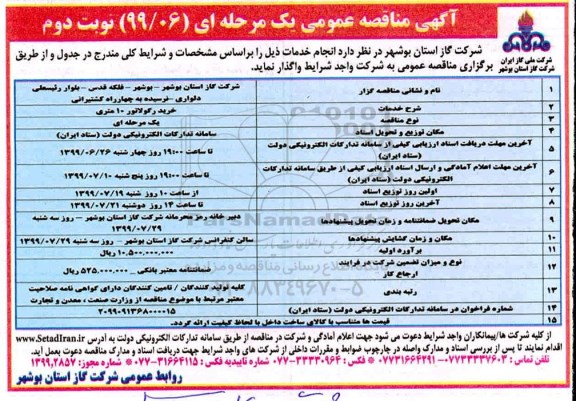 آگهی مناقصه عمومی یک مرحله ای (۹۹/۰۶) نوبت دوم
شرکت ملی گاز ایران
شرکت گاز استان بوشهر
شرکت گاز استان بوشهر در نظر دارد انجام خدمات ذیل را براساس مشخصات و شرایط کلی مندرج در جدول و از طریق
برگزاری مناقصه عمومی به شرکت واجد شرایط واگذار نماید.
۱ نام و نشانی مناقصه گزار شرکت گاز استان بوشهر - بوشهر - فلکه قدس - بلوار رئیسعلی
دلواری -نرسیده به چهارراه کشتیرانی
۲ شرح خدمات خرید رگولاتور ۱۰ متری
۳ نوع مناقصه یک مرحله ای
۴ مکان توزیع و تحویل اسناد سامانه تدارکات الکترونیکی دولت (ستاد ایران)
۵ آخرین مهلت دریافت اسناد ارزیابی کیفی از سامانه تدارکات الکترونیکی دولت
(ستاد ایران) تا ساعت ۱۹:۰۰ روز چهار شنبه ۱۳۹۹/۰۶/۲۶
۶ آخرین مهلت اعلام آمادگی و ارسال اسناد ارزیابی کیفی از طریق سامانه تدارکات
الکترونیکی دولت (ستاد ایران) تا ساعت ۱۹:۰۰ روز پنج شنبه ۱۳۹۹/۰۷/۱۰
۷ اولین روز توزیع اسناد از ساعت ۱۰ روز ۱۳۹۹/۰۷/۱۹
۸ آخرین روز توزیع اسناد تا ساعت ۱۴ روز دوشنبه ۱۳۹۹/۰۷/۲۱
۹ مکان تحویل ضمانتنامه و زمان تحویل پیشنهادها دبیر خانه رمز محرمانه شرکت گاز استان بوشهر – روز سه شنبه
۱۳۹۹/۰۷/۲۹
۱۰ مکان و زمان گشایش پیشنهادها سالن کنفرانس شرکت گاز استان بوشهر – روز سه شنبه ۱۳۹۹/۰۷/۲۹
۱۱ برآورد اولیه ۱۰.۵۰۰.۰۰۰.۰۰۰ ریال
۱۲ نوع و میزان تضمین شرکت در فرایند
ارجاع کار ضمانتنامه معتبر بانکی _ ۵۲۵.۰۰۰.۰۰۰ ریال
۱۳ رتبه بندی کلیه تولید کنندگان / تامین کنندگان دارای گواهی نامه صلاحیت
معتبر مرتبط با موضوع مناقصه از وزارت صنعت ، معدن و تجارت
۱۴ شماره فراخوان در سامانه تدارکات الکترونیکی دولت (ستاد ایران) ۲۰۹۹۰۹۱۳۶۸۰۰۰۰۱۵
۱۵ قیمت ها متناسب با کالای ساخت داخل با لحاظ کیفیت ارائه گردد.
از کلیه شرکت ها/پیمانکاران واجد شرایط دعوت می شود جهت اعلام آمادگی و شرکت در مناقصه از طریق سامانه تدارکات الکترونیکی دولت به آدرس www.SetadIran.ir
اقدام نمایند تا پس از بررسی اسناد و مدارک واصله در چارچوب ضوابط و مقررات داخلی از شرکت های واجد شرایط جهت دریافت اسناد و مدارک مناقصه دعوت بعمل آید.
تلفن تماس : ۰۷۷۳۳۳۳۷۶۰۳- ۰۷۷۳۱۶۶۴۲۹۱ * فاکس: ۳۳۳۳۰۹۶۴-۰۷۷ شماره تاییدیه فکس : ۳۱۶۶۴۱۱۵-۰۷۷ * شماره مجوز: ۱۳۹۹,۲۸۵۷
روابط عمومی شرکت گاز استان بوشهر